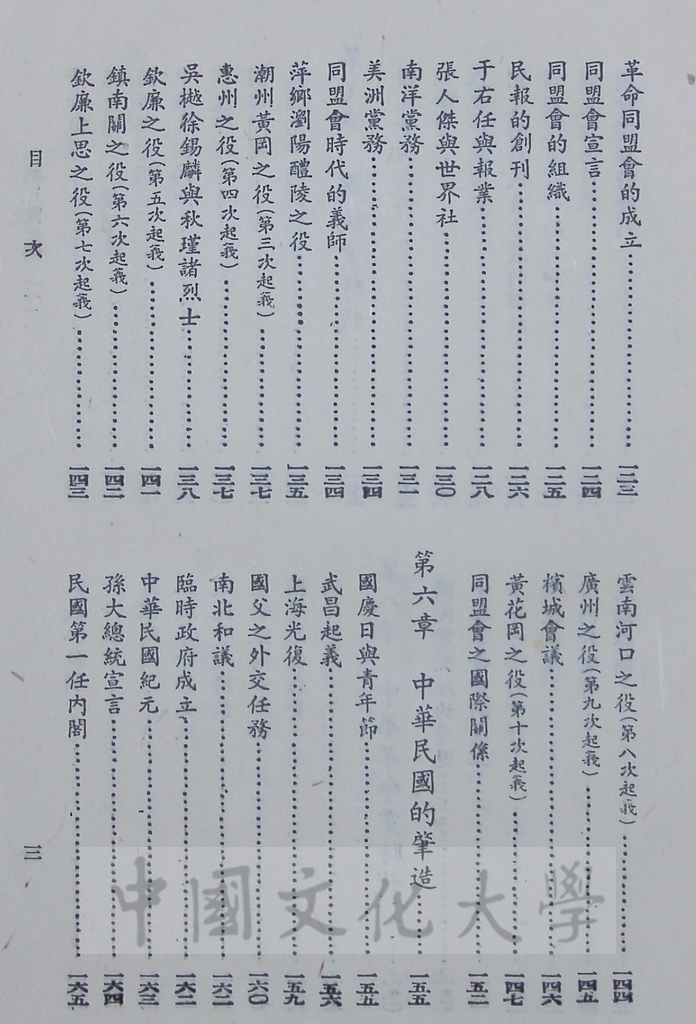 革命同盟會的成立……一二三
同盟會宣言……一二四
同盟會的組織……一二五
民報的創刊……一二六
于右任與報業……一二八
張人傑與世界社……一三〇
南洋黨務……一三一
美洲黨務……一三四
同盟會時代的義師……一三四
萍鄉瀏陽醴陵之役……一三五
潮州黃岡之役(第三次起義)……一三七
惠州之役(第四次起義)……一三七
吳樾徐錫麟與秋瑾諸烈士……一三八
欽廉之役(第五次起義)……一四一
鎮南關之役(第六次起義)……一四二
欽廉上思之役(第七次起義)……一四三
雲南河口之役(第八次起義)……一四四
廣州之役(第九次起義)……一四五
檳城會議……一四六
黃花岡之役(第十次起義)……一四七
同盟會之國際關係……一五二
第六章 中華民國的肇造……一五五
國慶日與青年節……一五五
武昌起義……一五六
上海光復……一五九
國父之外交任務……一六〇
南北和議……一六二
臨時政府成立……一六二
中華民國紀元……一六三
孫大總統宣言……一六四
民國第一任內閣……一六五
目次
三
中國文化大學